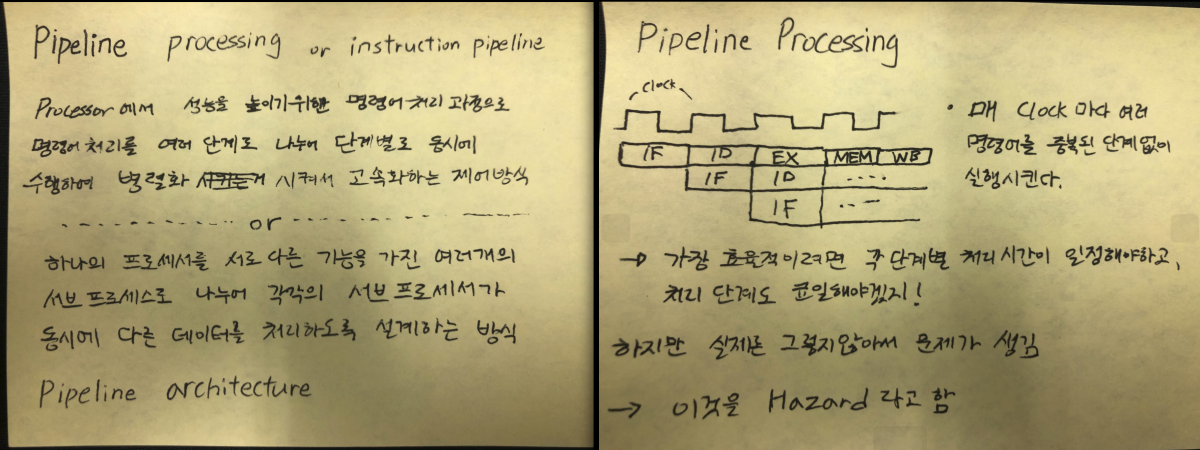 Pipeline processing or instruction pipeline
Processor에서 성능을 높이기위한 명령어 처리 과정으로
명령어 처리를 여러 단계로 나누어 단계별로 동시에
수행하여 병렬화 시켜서 고속화하는 제어방식
or
하나의 프로세서를 서로 다른 기능을 가진 여러개의
서브 프로세스로 나누어 각각의 서브 프로세서가
동시에 다른 데이터를 처리하도록 설계하는 방식
Pipeline architecture
Pipeline Processing
Clock
IF ID EX MEM WB
IF ID ....
IF ...
• 매 Clock 마다 여러
명령어를 중복된 단계 없이
실행시킨다.
→ 가장 효율적이려면 각 단계별 처리시간이 일정해야하고,
처리 단계도 균일해야겠지!
하지만 실제론 그렇지않아서 문제가 생김
→ 이것을 Hazard 라고 함